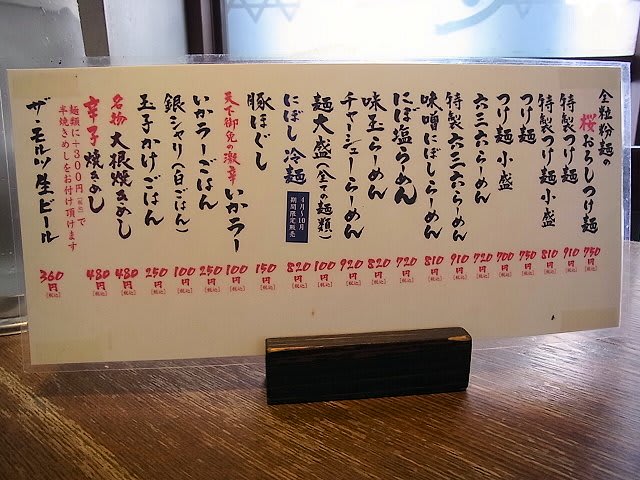 全粒粉麺の
桜おろしつけ麺 750円[税込]
特製つけ麺 910円[税込]
特製つけ麺 小盛 810円[税込]
つけ麺 750円[税込]
つけ麺 小盛 700円[税込]
六三六らーめん 720円[税込]
特製六三六らーめん 910円[税込]
味噌にぼしらーめん 810円[税込]
にぼ塩らーめん 720円[税込]
味玉らーめん 820円[税込]
チャーシューらーめん 920円[税込]
麺大盛(全ての麺類) 100円[税込]
にぼし冷麺 4月〜10月 期間限定販売 820円[税込]
豚ほぐし 150円[税込]
天下御免の激辛 いかラー 100円[税込]
いかラーごはん 250円[税込]
銀シャリ(白ごはん) 100円[税込]
玉子かけごはん 250円[税込]
名物 大根焼きめし 480円[税込]
辛子焼きめし 480円[税込]
麺類に+300円(税込)で
半焼きめしをお付け頂けます
ザ・モルツ生ビール 360円[税込]